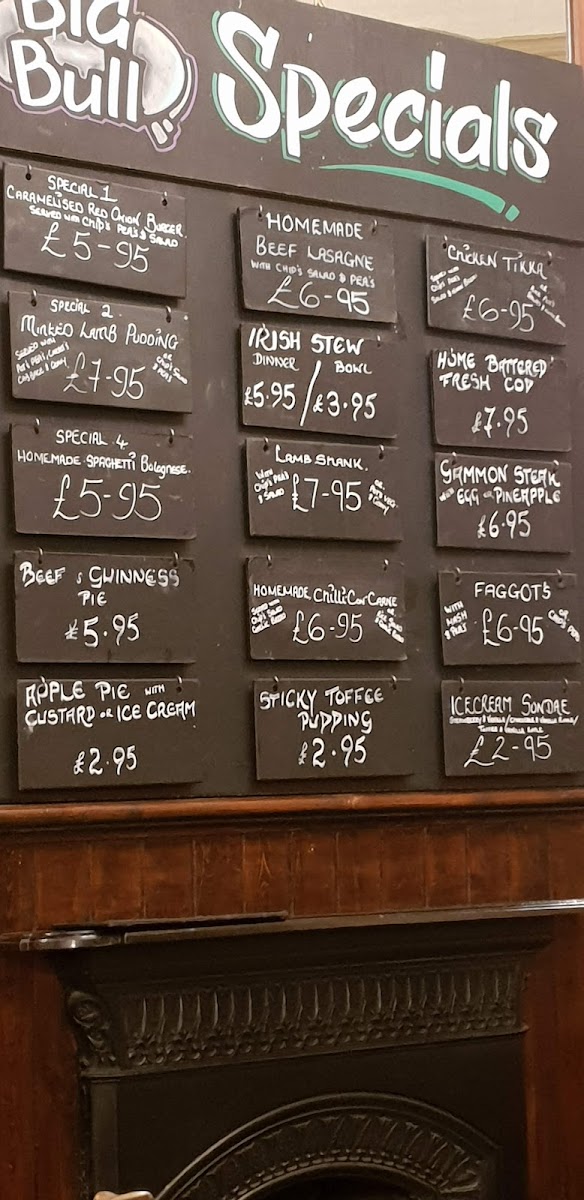 Big
Bull
Specials
SPECIAL 1
CARAMELISED RED ONION BURGER
SERVED WITH CHIP'S PEA'S & SALAD
£5-95
SPECIAL 2
MINTED LAMB PUDDING
SERVED WITH
£7-95
OR
CHIP'S SALAD
& PEA'S
SPECIAL 4
HOMEMADE SPAGHETTI Bolognese.
£5-95
BEEF & GUINNESS
PIE
£5.95
APPLE PIE WITH
CUSTARD OR ICE CREAM
£2.95
HOMEMADE
BEEF LASAGNE
WITH CHIP'S SALAD & PEA'S
£6-95
IRISH STEW
DINNER / BOWL
£5.95 / £3.95
LAMB SHANK.
WITH
CHIP'S PEA'S
& SALAD
£7-95
HOMEMADE Chilli Con CARNE
SERVED WITH
CHIP'S SALAD
GARLIC BREAD
£6-95
STICKY TOFFEE
PUDDING
£2.95
CHICKEN TIKKA
£6-95
HOME BATTERED
FRESH COD
£7.95
GAMMON STEAK
EGG OR PINEAPPLE
£6.95
FAGGOTS
WITH
MASH
& PEA'S
£6-95
OR
CHIP'S
ICECREAM SONDAE
£2-95